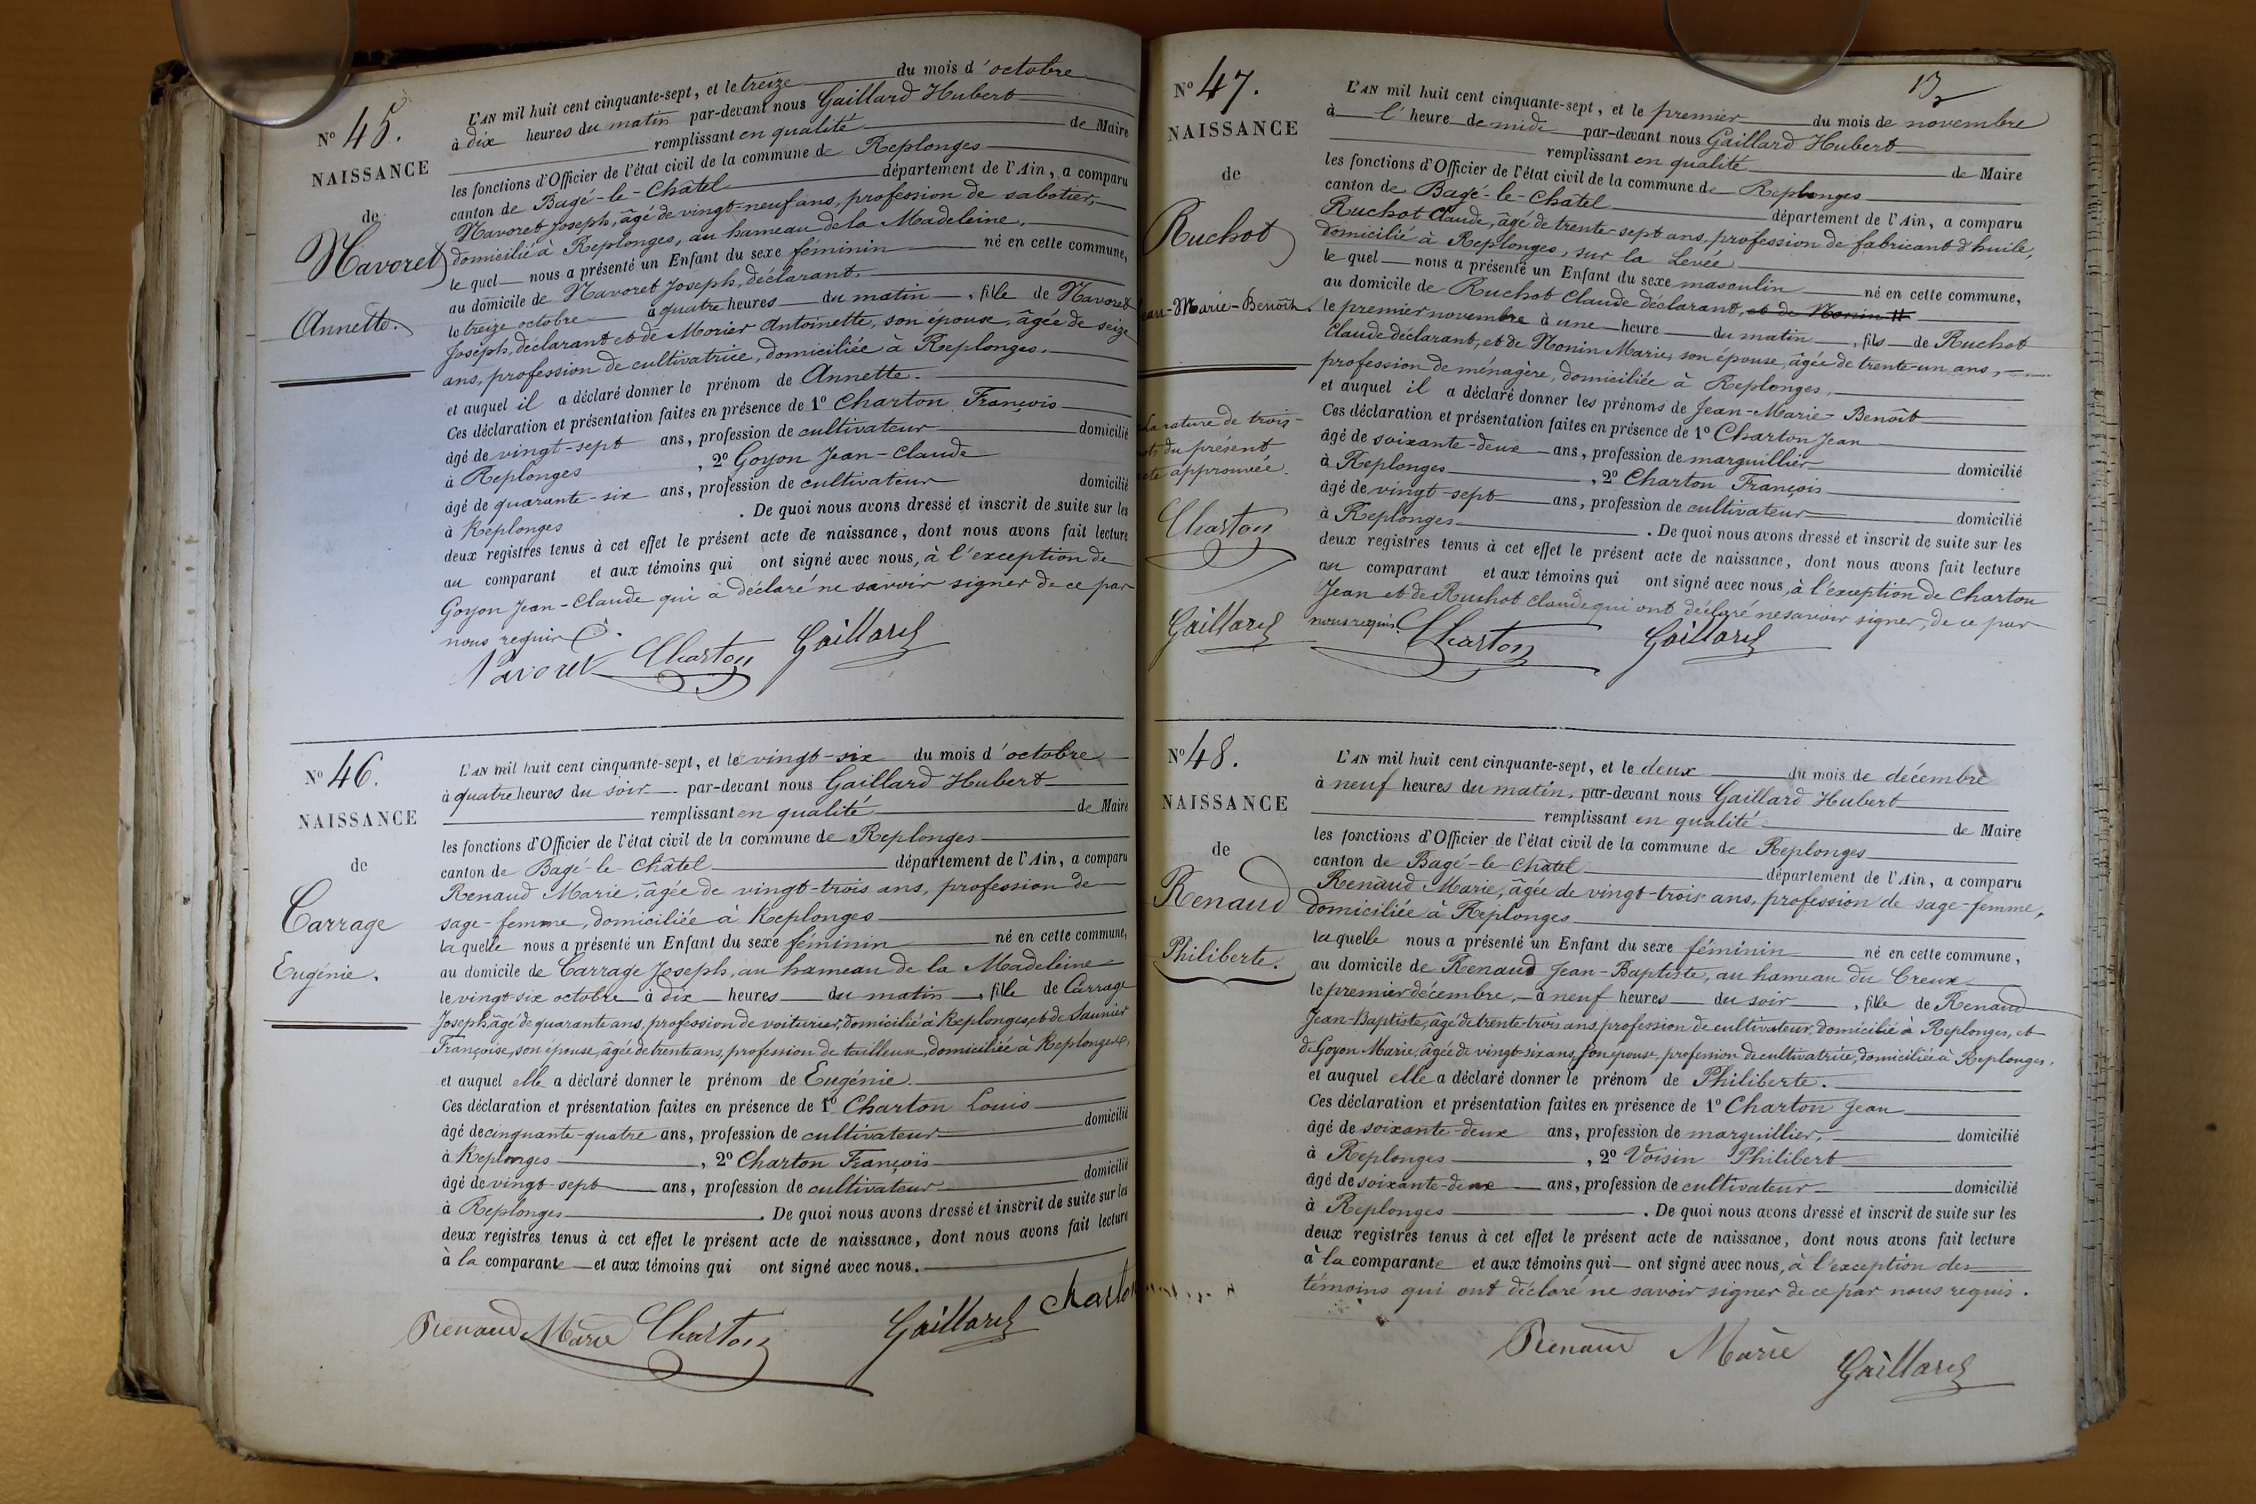 N° 45.
NAISSANCE
de
Navoret
Annette.
L'AN mil huit cent cinquante-sept, et le treize du mois d'octobre
à dix heures du matin par-devant nous Gaillard Hubert
remplissant en qualité de Maire
les fonctions d'Officier de l'état civil de la commune de Replonges
canton de Bagé-le-Châtel département de l'Ain, a comparu
Navoret Joseph, âgé de vingt-neuf ans, profession de sabotier,
domicilié à Replonges, au hameau de la Madeleine,
le quel nous a présenté un Enfant du sexe féminin né en cette commune,
au domicile de Navoret Joseph, déclarant,
le treize octobre à quatre heures du matin, fille de Navoret
Joseph, déclarant et de Morier Antoinette, son épouse, âgée de seize
ans, profession de cultivatrice, domiciliée à Replonges.
et auquel il a déclaré donner le prénom de Annette.
Ces déclaration et présentation faites en présence de 1° Charton François
âgé de vingt-sept ans, profession de cultivateur domicilié
à Replonges, 2° Goyon Jean-Claude
âgé de quarante-six ans, profession de cultivateur domicilié
à Replonges. De quoi nous avons dressé et inscrit de suite sur les
deux registres tenus à cet effet le présent acte de naissance, dont nous avons fait lecture
au comparant et aux témoins qui ont signé avec nous, à l'exception de
Goyon Jean-Claude qui a déclaré ne savoir signer de ce par
nous requis.
Navoret Charton Gaillard
N° 46.
NAISSANCE
de
Carrage
Eugénie.
L'AN mil huit cent cinquante-sept, et le vingt-six du mois d'octobre
à quatre heures du soir par-devant nous Gaillard Hubert
remplissant en qualité de Maire
les fonctions d'Officier de l'état civil de la commune de Replonges
canton de Bagé-le-Châtel département de l'Ain, a comparu
Renaud Marie, âgée de vingt-trois ans, profession de
sage-femme, domiciliée à Replonges
la quelle nous a présenté un Enfant du sexe féminin né en cette commune,
au domicile de Carrage Joseph, au hameau de la Madeleine
le vingt-six octobre à dix heures du matin, fille de Carrage
Joseph âgé de quarante ans, profession de voiturier, domicilié à Replonges, et de Saunier
Françoise, son épouse, âgée de trente ans, profession de tailleuse, domiciliée à Replonges,
et auquel elle a déclaré donner le prénom de Eugénie.
Ces déclaration et présentation faites en présence de 1° Charton Louis
âgé de cinquante-quatre ans, profession de cultivateur domicilié
à Replonges, 2° Charton François
âgé de vingt-sept ans, profession de cultivateur domicilié
à Replonges. De quoi nous avons dressé et inscrit de suite sur les
deux registres tenus à cet effet le présent acte de naissance, dont nous avons fait lecture
à la comparante et aux témoins qui ont signé avec nous.
Renaud Marie Charton Gaillard Charton
13
N° 47.
NAISSANCE
de
Ruchot
Jean-Marie-Benoît.
La rature de trois
mots du présent
acte approuvée.
Charton
Gaillard
L'AN mil huit cent cinquante-sept, et le premier du mois de novembre
à l'heure de midi par-devant nous Gaillard Hubert
remplissant en qualité de Maire
les fonctions d'Officier de l'état civil de la commune de Replonges
canton de Bagé-le-Châtel département de l'Ain, a comparu
Ruchot Claude, âgé de trente-sept ans, profession de fabricant d'huile,
domicilié à Replonges, sur la Levée
le quel nous a présenté un Enfant du sexe masculin né en cette commune,
au domicile de Ruchot Claude déclarant, et de Nonin
le premier novembre à une heure du matin, fils de Ruchot
Claude déclarant, et de Nonin Marie, son épouse, âgée de trente-un ans,
profession de ménagère, domiciliée à Replonges,
et auquel il a déclaré donner les prénoms de Jean-Marie-Benoît
Ces déclaration et présentation faites en présence de 1° Charton Jean
âgé de soixante-deux ans, profession de marguillier domicilié
à Replonges, 2° Charton François
âgé de vingt-sept ans, profession de cultivateur domicilié
à Replonges. De quoi nous avons dressé et inscrit de suite sur les
deux registres tenus à cet effet le présent acte de naissance, dont nous avons fait lecture
au comparant et aux témoins qui ont signé avec nous, à l'exception de Charton
Jean et de Ruchot Claude qui ont déclaré ne savoir signer, de ce par
nous requis.
Charton Gaillard
N° 48.
NAISSANCE
de
Renaud
Philiberte.
L'AN mil huit cent cinquante-sept, et le deux du mois de décembre
à neuf heures du matin, par-devant nous Gaillard Hubert
remplissant en qualité de Maire
les fonctions d'Officier de l'état civil de la commune de Replonges
canton de Bagé-le-Châtel département de l'Ain, a comparu
Renaud Marie, âgée de vingt-trois ans, profession de sage-femme,
domiciliée à Replonges
la quelle nous a présenté un Enfant du sexe féminin né en cette commune,
au domicile de Renaud Jean-Baptiste, au hameau du Creux
le premier décembre, à neuf heures du soir, fille de Renaud
Jean-Baptiste, âgé de trente-trois ans, profession de cultivateur, domicilié à Replonges, et
de Goyon Marie, âgée de vingt-six ans, son épouse, profession de cultivatrice, domiciliée à Replonges.
et auquel elle a déclaré donner le prénom de Philiberte.
Ces déclaration et présentation faites en présence de 1° Charton Jean
âgé de soixante-deux ans, profession de marguillier, domicilié
à Replonges, 2° Voisin Philibert
âgé de soixante-deux ans, profession de cultivateur domicilié
à Replonges. De quoi nous avons dressé et inscrit de suite sur les
deux registres tenus à cet effet le présent acte de naissance, dont nous avons fait lecture
à la comparante et aux témoins qui ont signé avec nous, à l'exception des
témoins qui ont déclaré ne savoir signer de ce par nous requis.
Renaud Marie Gaillard